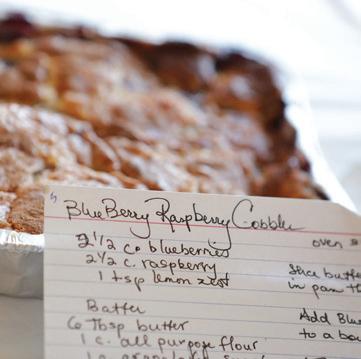 BlueBerry Raspberry Cobbler
oven
2 1/2 c. blueberries
2 1/2 c. raspberry
1 tsp lemon zest
Slice butter
in pan
Batter
6 Tbsp butter
1 c. all purpose flour
Add Blue
to a